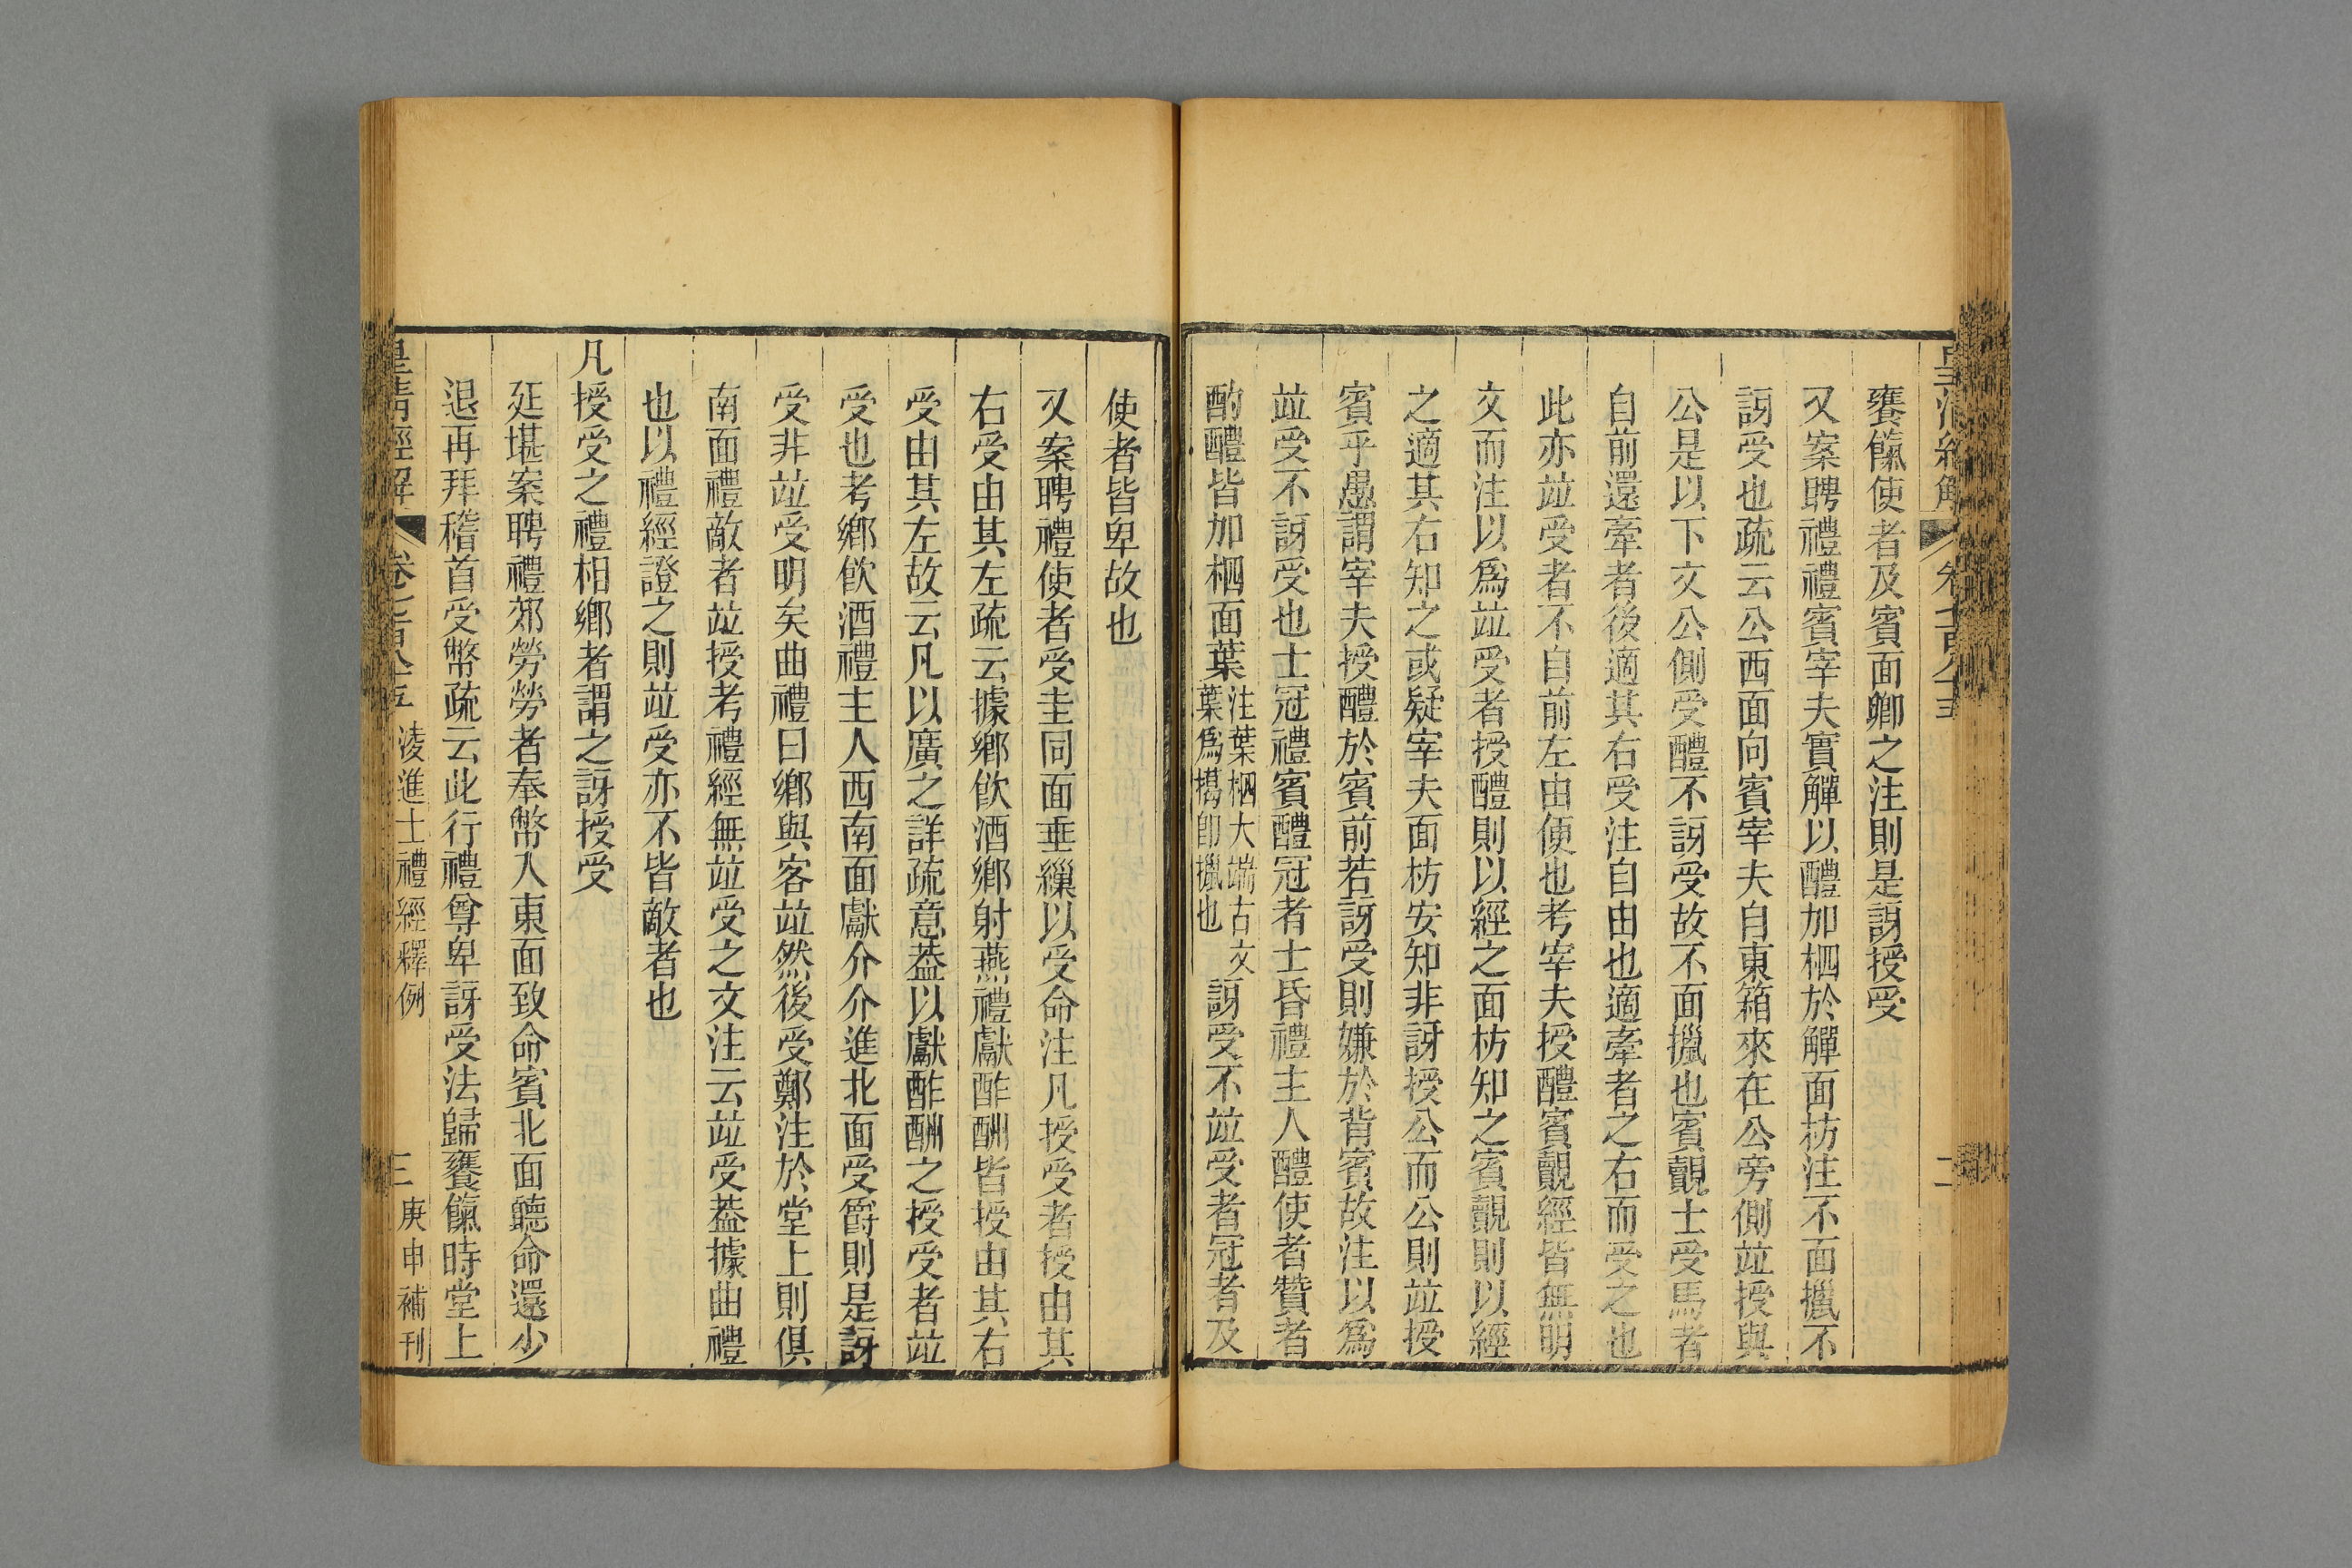 饔餼使者及賓面卿之注則是訝授受
又案聘禮禮賓宰夫實觶以醴加柶於觶面枋注不面擸不
訝受也疏云公西面向賓宰夫自東箱來在公旁側竝授與
公是以下文公側受醴不訝受故不面擸也賓覿士受馬者
自前還牽者後適其右受注自由也適牽者之右而受之也
此亦竝受者不自前左由便也考宰夫授醴賓覿經皆無明
文而注以爲竝受者授醴則以經之面枋知之賓覿則以經
之適其右知之或疑宰夫面枋安知非訝授公而公則竝授
賓乎愚謂宰夫授醴於賓前若訝受則嫌於背賓故注以爲
竝受不訝受也士冠禮賓醴冠者士昏禮主人醴使者贊者
酌醴皆加柶面葉注葉柶大端古文葉爲擖卽擸也訝受不竝受者冠者及
使者皆卑故也
又案聘禮使者受圭同面垂繅以受命注凡授受者授由其
右受由其左疏云據鄉飮酒鄉射燕禮獻酢酬皆授由其右
受由其左故云凡以廣之詳疏意葢以獻酢酬之授受者竝
受也考鄉飮酒禮主人西南面獻介介進北面受爵則是訝
受非竝受明矣曲禮曰鄉與客竝然後受鄭注於堂上則俱
南面禮敵者竝授考禮經無竝受之文注云竝受葢據曲禮
也以禮經證之則竝受亦不皆敵者也
凡授受之禮相鄉者謂之訝授受
延堪案聘禮郊勞勞者奉幣入東面致命賓北面聽命還少
退再拜稽首受幣疏云此行禮尊卑訝受法歸饔餼時堂上
皇清經解 卷七百八十五 淩進士禮經釋例 三 庚申補刊